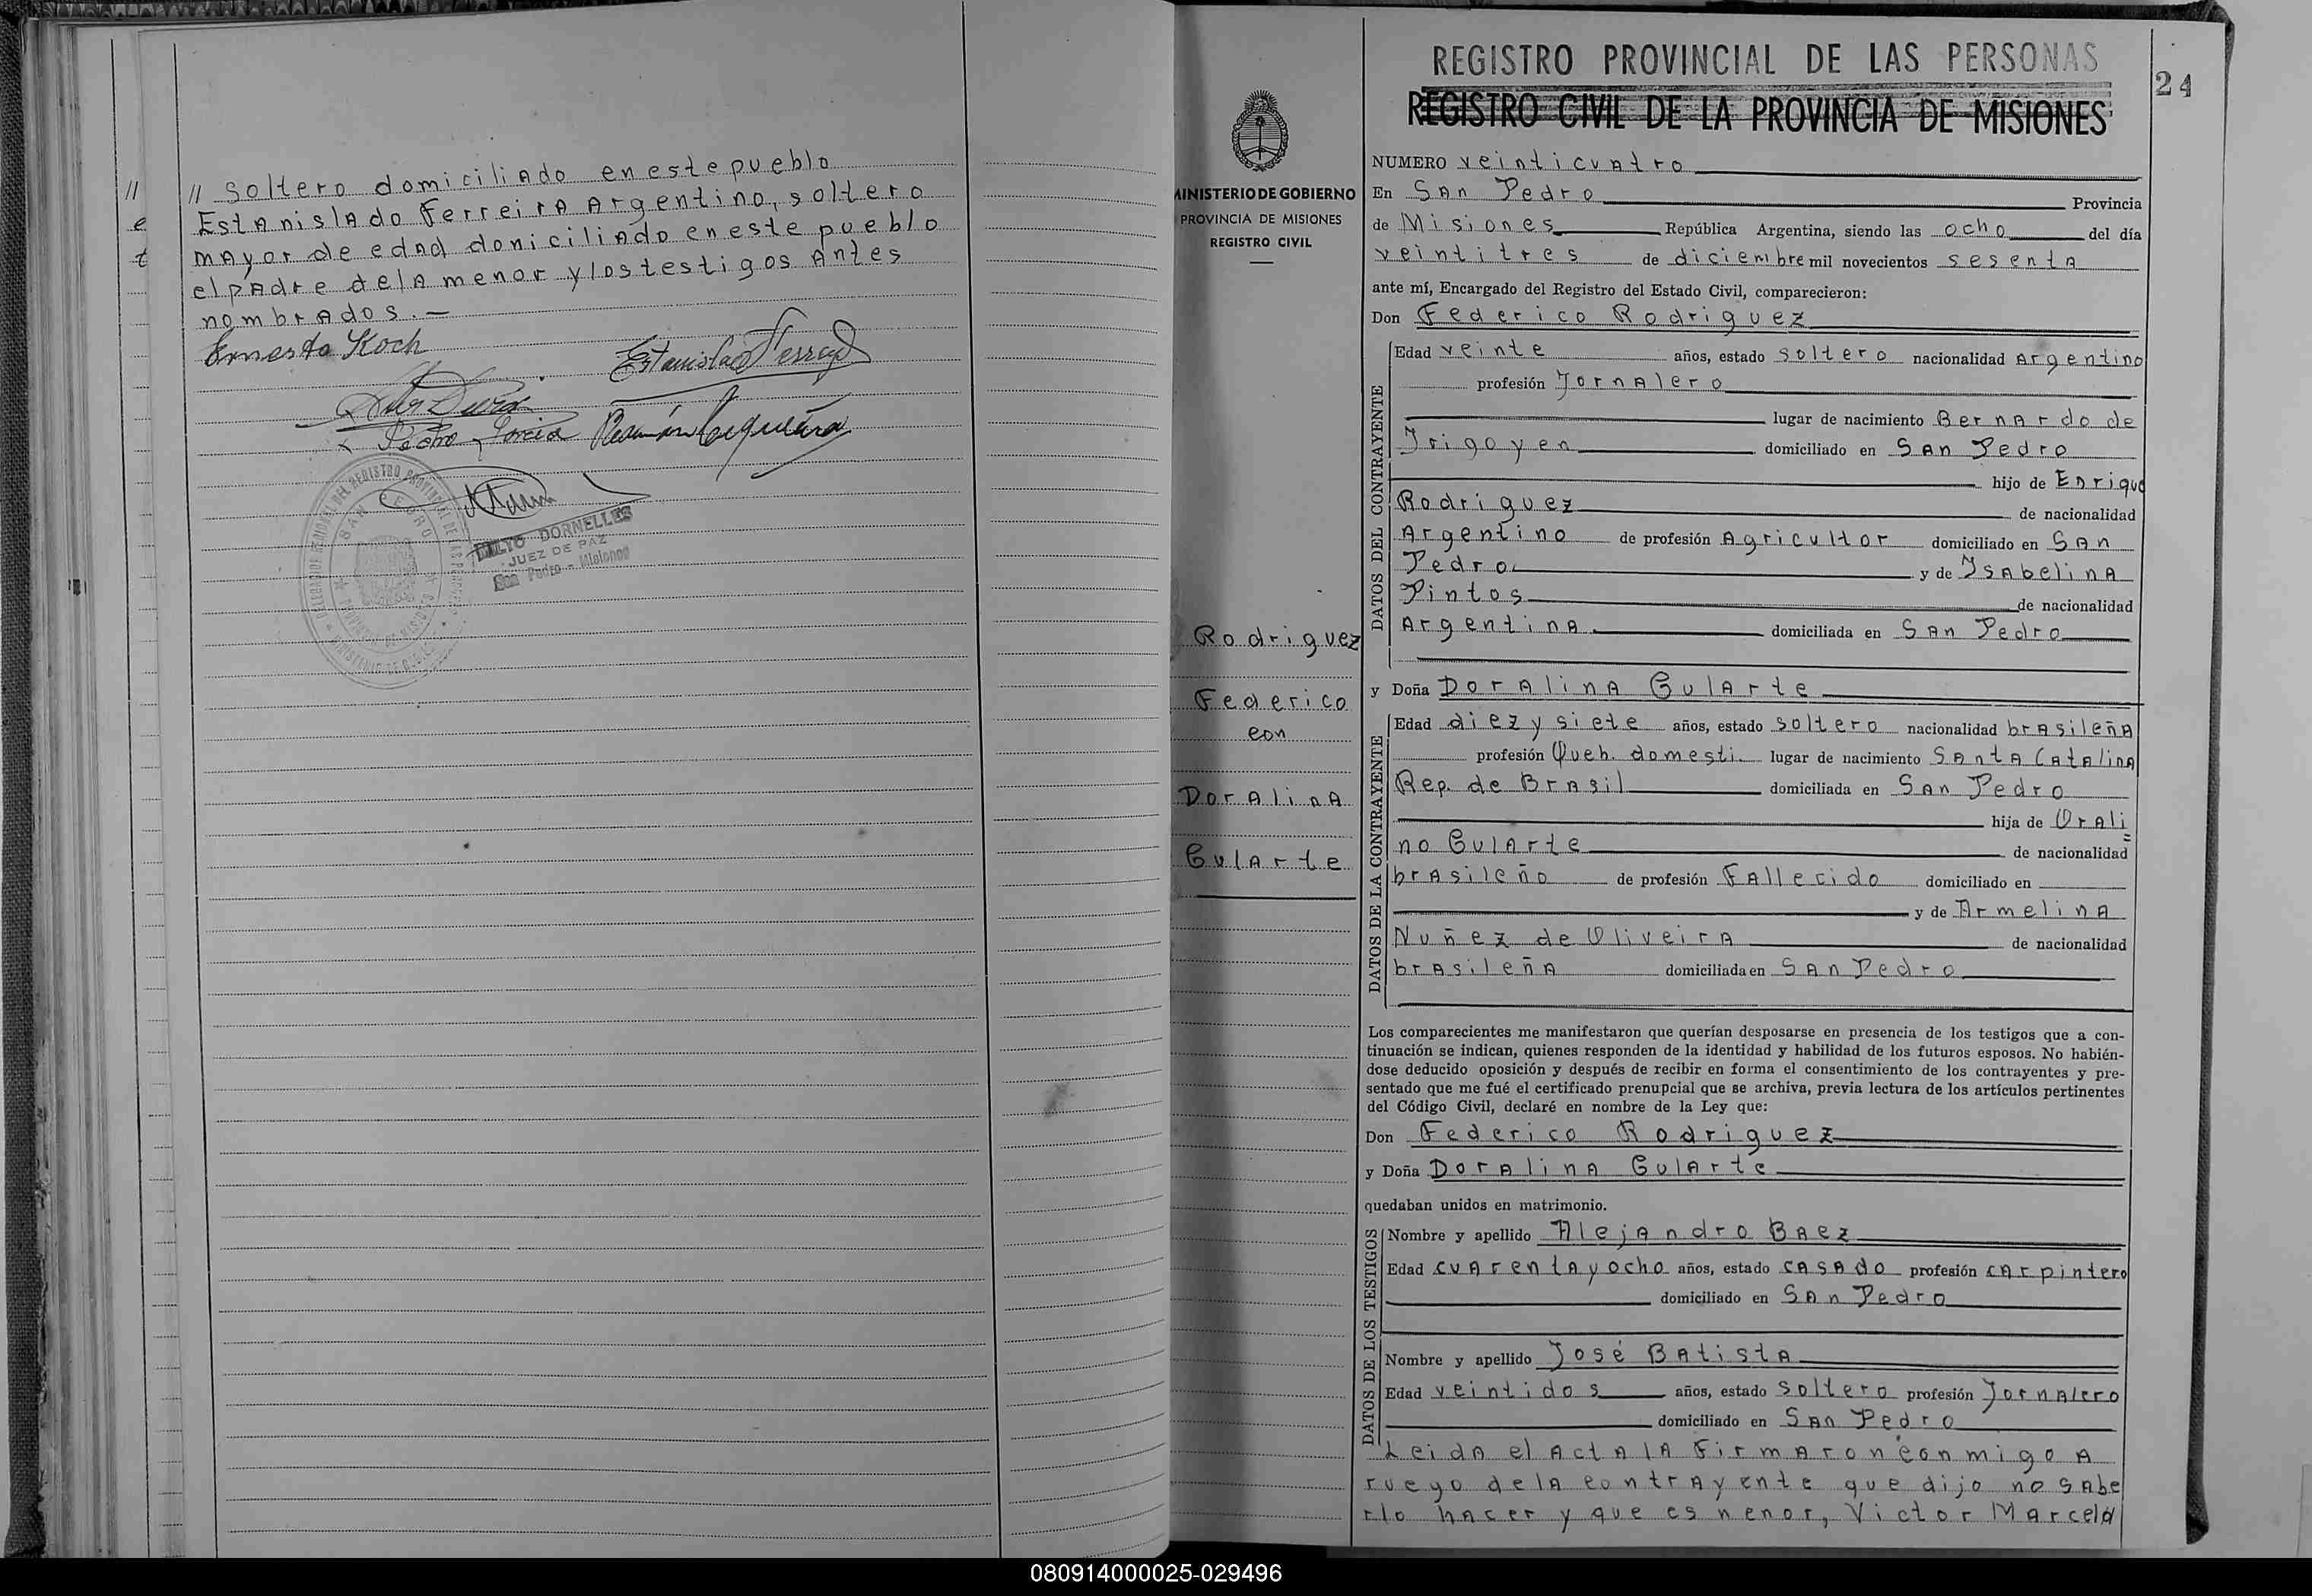 // soltero domiciliado en este pueblo
e Estanislado Ferreira Argentino, soltero
t mayor de edad doniciliado en este pueblo
el padre de la menor y los testigos Antes
nombrados.—
Ernesto Koch
Pedro
Ramón
SAN PEDRO
DORNELLES
JUEZ DE PAZ
San Pedro - Misiones
MINISTERIO DE GOBIERNO
PROVINCIA DE MISIONES
REGISTRO CIVIL
Rodriguez
Federico
con
Doralina
Gularte
REGISTRO PROVINCIAL DE LAS PERSONAS
24
REGISTRO CIVIL DE LA PROVINCIA DE MISIONES
NUMERO veinticuatro
En San Pedro Provincia
de Misiones República Argentina, siendo las ocho del día
veintitres de diciembre mil novecientos sesenta
ante mí, Encargado del Registro del Estado Civil, comparecieron:
Don Federico Rodriguez
DATOS DEL CONTRAYENTE
Edad veinte años, estado soltero nacionalidad Argentino
profesión Jornalero
lugar de nacimiento Bernardo de
Irigoyen domiciliado en San Pedro
hijo de Enrique
Rodriguez de nacionalidad
Argentino de profesión Agricultor domiciliado en San
Pedro y de Isabelina
Pintos de nacionalidad
Argentina domiciliada en San Pedro
y Doña Doralina Gularte
DATOS DE LA CONTRAYENTE
Edad diez y siete años, estado soltero nacionalidad brasileña
profesión Queh. domesti. lugar de nacimiento Santa Catalina
Rep. de Brasil domiciliada en San Pedro
hija de Orali=
no Gularte de nacionalidad
brasileño de profesión Fallecido domiciliado en
y de Armelina
Nuñez de Oliveira de nacionalidad
brasileña domiciliada en San Pedro
Los comparecientes me manifestaron que querían desposarse en presencia de los testigos que a con-
tinuación se indican, quienes responden de la identidad y habilidad de los futuros esposos. No habién-
dose deducido oposición y después de recibir en forma el consentimiento de los contrayentes y pre-
sentado que me fué el certificado prenupcial que se archiva, previa lectura de los artículos pertinentes
del Código Civil, declaré en nombre de la Ley que:
Don Federico Rodriguez
y Doña Doralina Gularte
quedaban unidos en matrimonio.
DATOS DE LOS TESTIGOS
Nombre y apellido Alejandro Baez
Edad cuarenta y ocho años, estado casado profesión carpintero
domiciliado en San Pedro
Nombre y apellido José Batista
Edad veintidos años, estado soltero profesión Jornalero
domiciliado en San Pedro
Leida el Acta la Firmaron conmigo A
ruego de la contrayente que dijo no sabe
rlo hacer y que es nenor, Victor Marcela
080914000025-029496